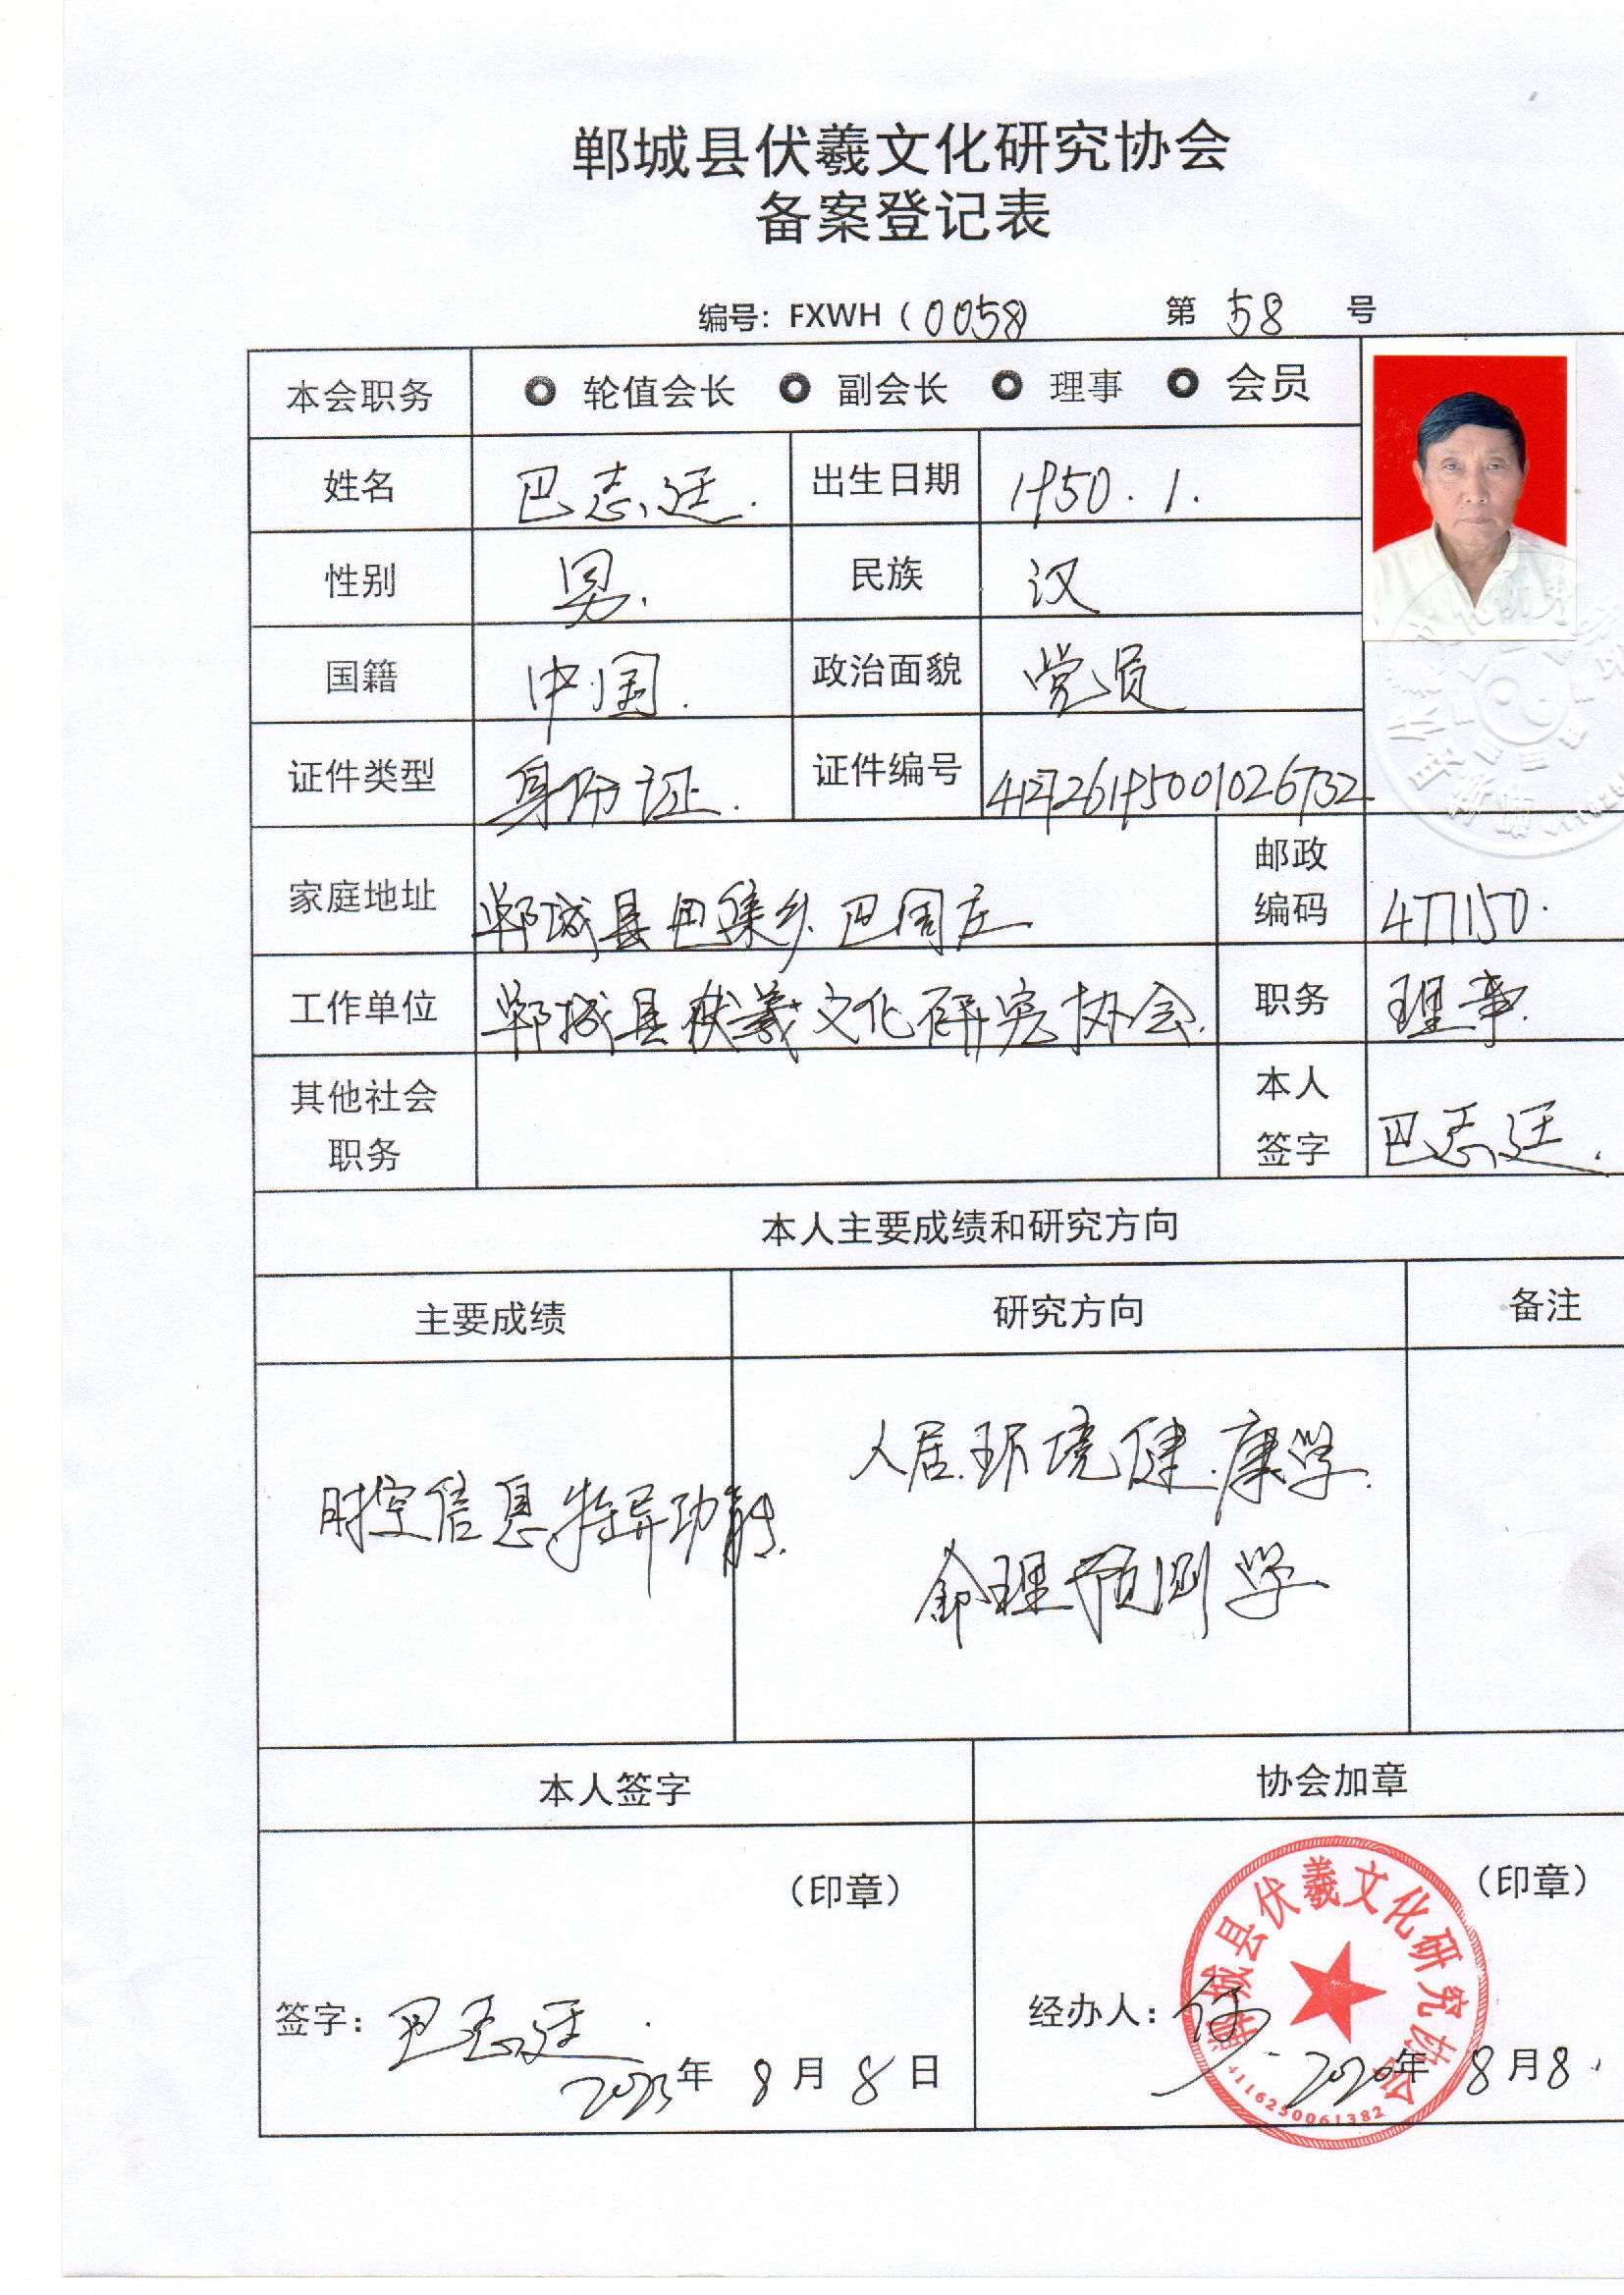 郸城县伏羲文化研究协会
备案登记表
编号：FXWH（0058） 第 58 号
本会职务 轮值会长 副会长 理事 会员
姓名 巴志廷. 出生日期 1950.1.
性别 男. 民族 汉
国籍 中国. 政治面貌 党员
证件类型 身份证. 证件编号
家庭地址 郸城县巴集乡巴周庄 邮政编码 477150.
工作单位 郸城县伏羲文化研究协会. 职务 理事.
其他社会职务 本人签字 巴志廷.
本人主要成绩和研究方向
主要成绩 研究方向 备注
人居环境健康学.
时空信息特异功能.
命理预测学
本人签字 协会加章
（印章） （印章）
签字：巴志廷. 经办人：
2023年 8月8日 8月8.
郸城县伏羲文化研究协会
4116250061382